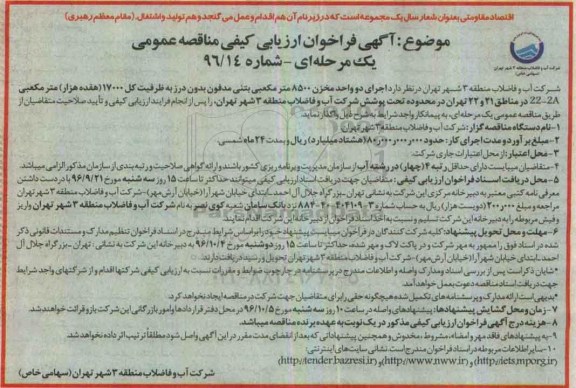 اقتصاد مقاومتی بعنوان شعار سال یک مجموعه است که در زیر نام آن هم اقدام و عمل می گنجد و هم تولید و اشتغال. (مقام معظم رهبری)
موضوع: آگهی فراخوان ارزیابی کیفی مناقصه عمومی
یک مرحله‌ای - شماره ۹۶/۱۴
شرکت آب و فاضلاب منطقه ۳ شهر تهران
(سهامی خاص)
شرکت آب و فاضلاب منطقه ۳ شهر تهران در نظر دارد اجرای دو واحد مخزن ۸۵۰۰ متر مکعبی بتنی مدفون بدون درز به ظرفیت کل ۱۷۰۰۰ (هفده هزار) متر مکعبی
22-2A در مناطق ۲۱ و ۲۲ تهران در محدوده تحت پوشش شرکت آب و فاضلاب منطقه ۳ شهر تهران، را پس از انجام فرایند ارزیابی کیفی و تأیید صلاحیت متقاضیان از
طریق مناقصه عمومی یک مرحله‌ای، به پیمانکار واجد شرایط به شرح ذیل واگذار نماید.
۱- نام دستگاه مناقصه گزار: شرکت آب و فاضلاب منطقه ۳ شهر تهران
۲- مبلغ برآورد و مدت اجرای کار: حدود ۸۰،۰۰۰،۰۰۰،۰۰۰ (هشتاد میلیارد) ریال و بمدت ۲۴ ماه شمسی
۳- محل اعتبار: از محل اعتبارات جاری شرکت
۴- متقاضیان میبایست دارای حداقل رتبه ۴ (چهار) در رشته آب از سازمان مدیریت و برنامه ریزی کشور باشند و ارائه گواهی صلاحیت و رتبه بندی از سازمان مذکور الزامی میباشد.
۵- محل دریافت اسناد فراخوان ارزیابی کیفی: متقاضیان جهت دریافت اسناد ارزیابی کیفی میتوانند حداکثر تا ساعت ۱۵ روز سه شنبه مورخ ۹۶/۹/۲۱ با در دست داشتن
معرفی نامه کتبی معتبر به دبیرخانه مرکزی این شرکت به نشانی تهران - بزرگراه جلال آل احمد، ابتدای خیابان شهرآرا (خیابان آرش مهر) - شرکت آب و فاضلاب منطقه ۳ شهر تهران
مراجعه و مبلغ ۲۰۰،۰۰۰ (دویست هزار) ریال به حساب شماره نزد بانک سامان شعبه کوی نصر به نام شرکت آب و فاضلاب منطقه ۳ شهر تهران واریز
و فیش مربوطه را به دبیرخانه این شرکت تسلیم و نسبت به اخذ اسناد فراخوان از دبیرخانه این شرکت اقدام نمایند.
۶- مهلت و محل تحویل پیشنهاد: کلیه شرکت کنندگان در فراخوان میبایست پیشنهاد خود را براساس شرایط مندرج در اسناد فراخوان تنظیم، مدارک و مستندات قانونی ذکر
شده در اسناد فوق را ممهور به مهر شرکت و در پاکت لاک و مهر شده، حداکثر تا ساعت ۱۵ روز دوشنبه مورخ ۹۶/۱۰/۴ به دبیرخانه این شرکت به نشانی: تهران - بزرگراه جلال آل
احمد، ابتدای خیابان شهرآرا (خیابان آرش مهر) - شرکت آب و فاضلاب منطقه ۳ شهر تهران تحویل و رسید دریافت دارند.
*شایان ذکر است پس از بررسی اسناد و مدارک واصله و اطلاعات مندرج در پرسشنامه در چارچوب ضوابط و مقررات نسبت به ارزیابی کیفی شرکتها اقدام و از شرکتهای واجد شرایط
جهت دریافت اسناد مناقصه دعوت بعمل خواهد آمد.
*بدیهی است ارائه مدارک و پرسشنامه های تکمیل شده هیچگونه حقی را برای متقاضیان جهت شرکت در مناقصه ایجاد نخواهد کرد.
۷- زمان و محل گشایش پیشنهادها: پیشنهادهای واصله در ساعت ۱۰ روز سه شنبه مورخ ۹۶/۱۰/۵ در محل دفتر قراردادها و امور بازرگانی این شرکت باز و قرائت خواهند شد.
۸- هزینه درج آگهی فراخوان ارزیابی کیفی مذکور در یک نوبت به عهده برنده مناقصه میباشد.
۹- به پیشنهادهای فاقد مهر و امضاء، مشروط، مخدوش و همچنین پیشنهاداتی که بعد از انقضای مدت مقرر در این آگهی واصل شود مطلقاً ترتیب اثر داده نخواهد شد.
۱۰- سایر اطلاعات مربوطه در اسناد فراخوان مندرج است. نشانی سایت های اینترنتی:
(http://iets.mporg.ir) و (http://www.nww.ir) و (http://tender.bazresi.ir)
شرکت آب و فاضلاب منطقه ۳ شهر تهران (سهامی خاص)